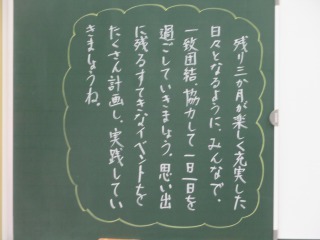 残り三か月が楽しく充実した
日々となるように、みんなで、
一致団結、協力して一日一日を
過ごしていきましょう。思い出
に残るすてきなイベントも
たくさん計画し、実践してい
きましょうね。